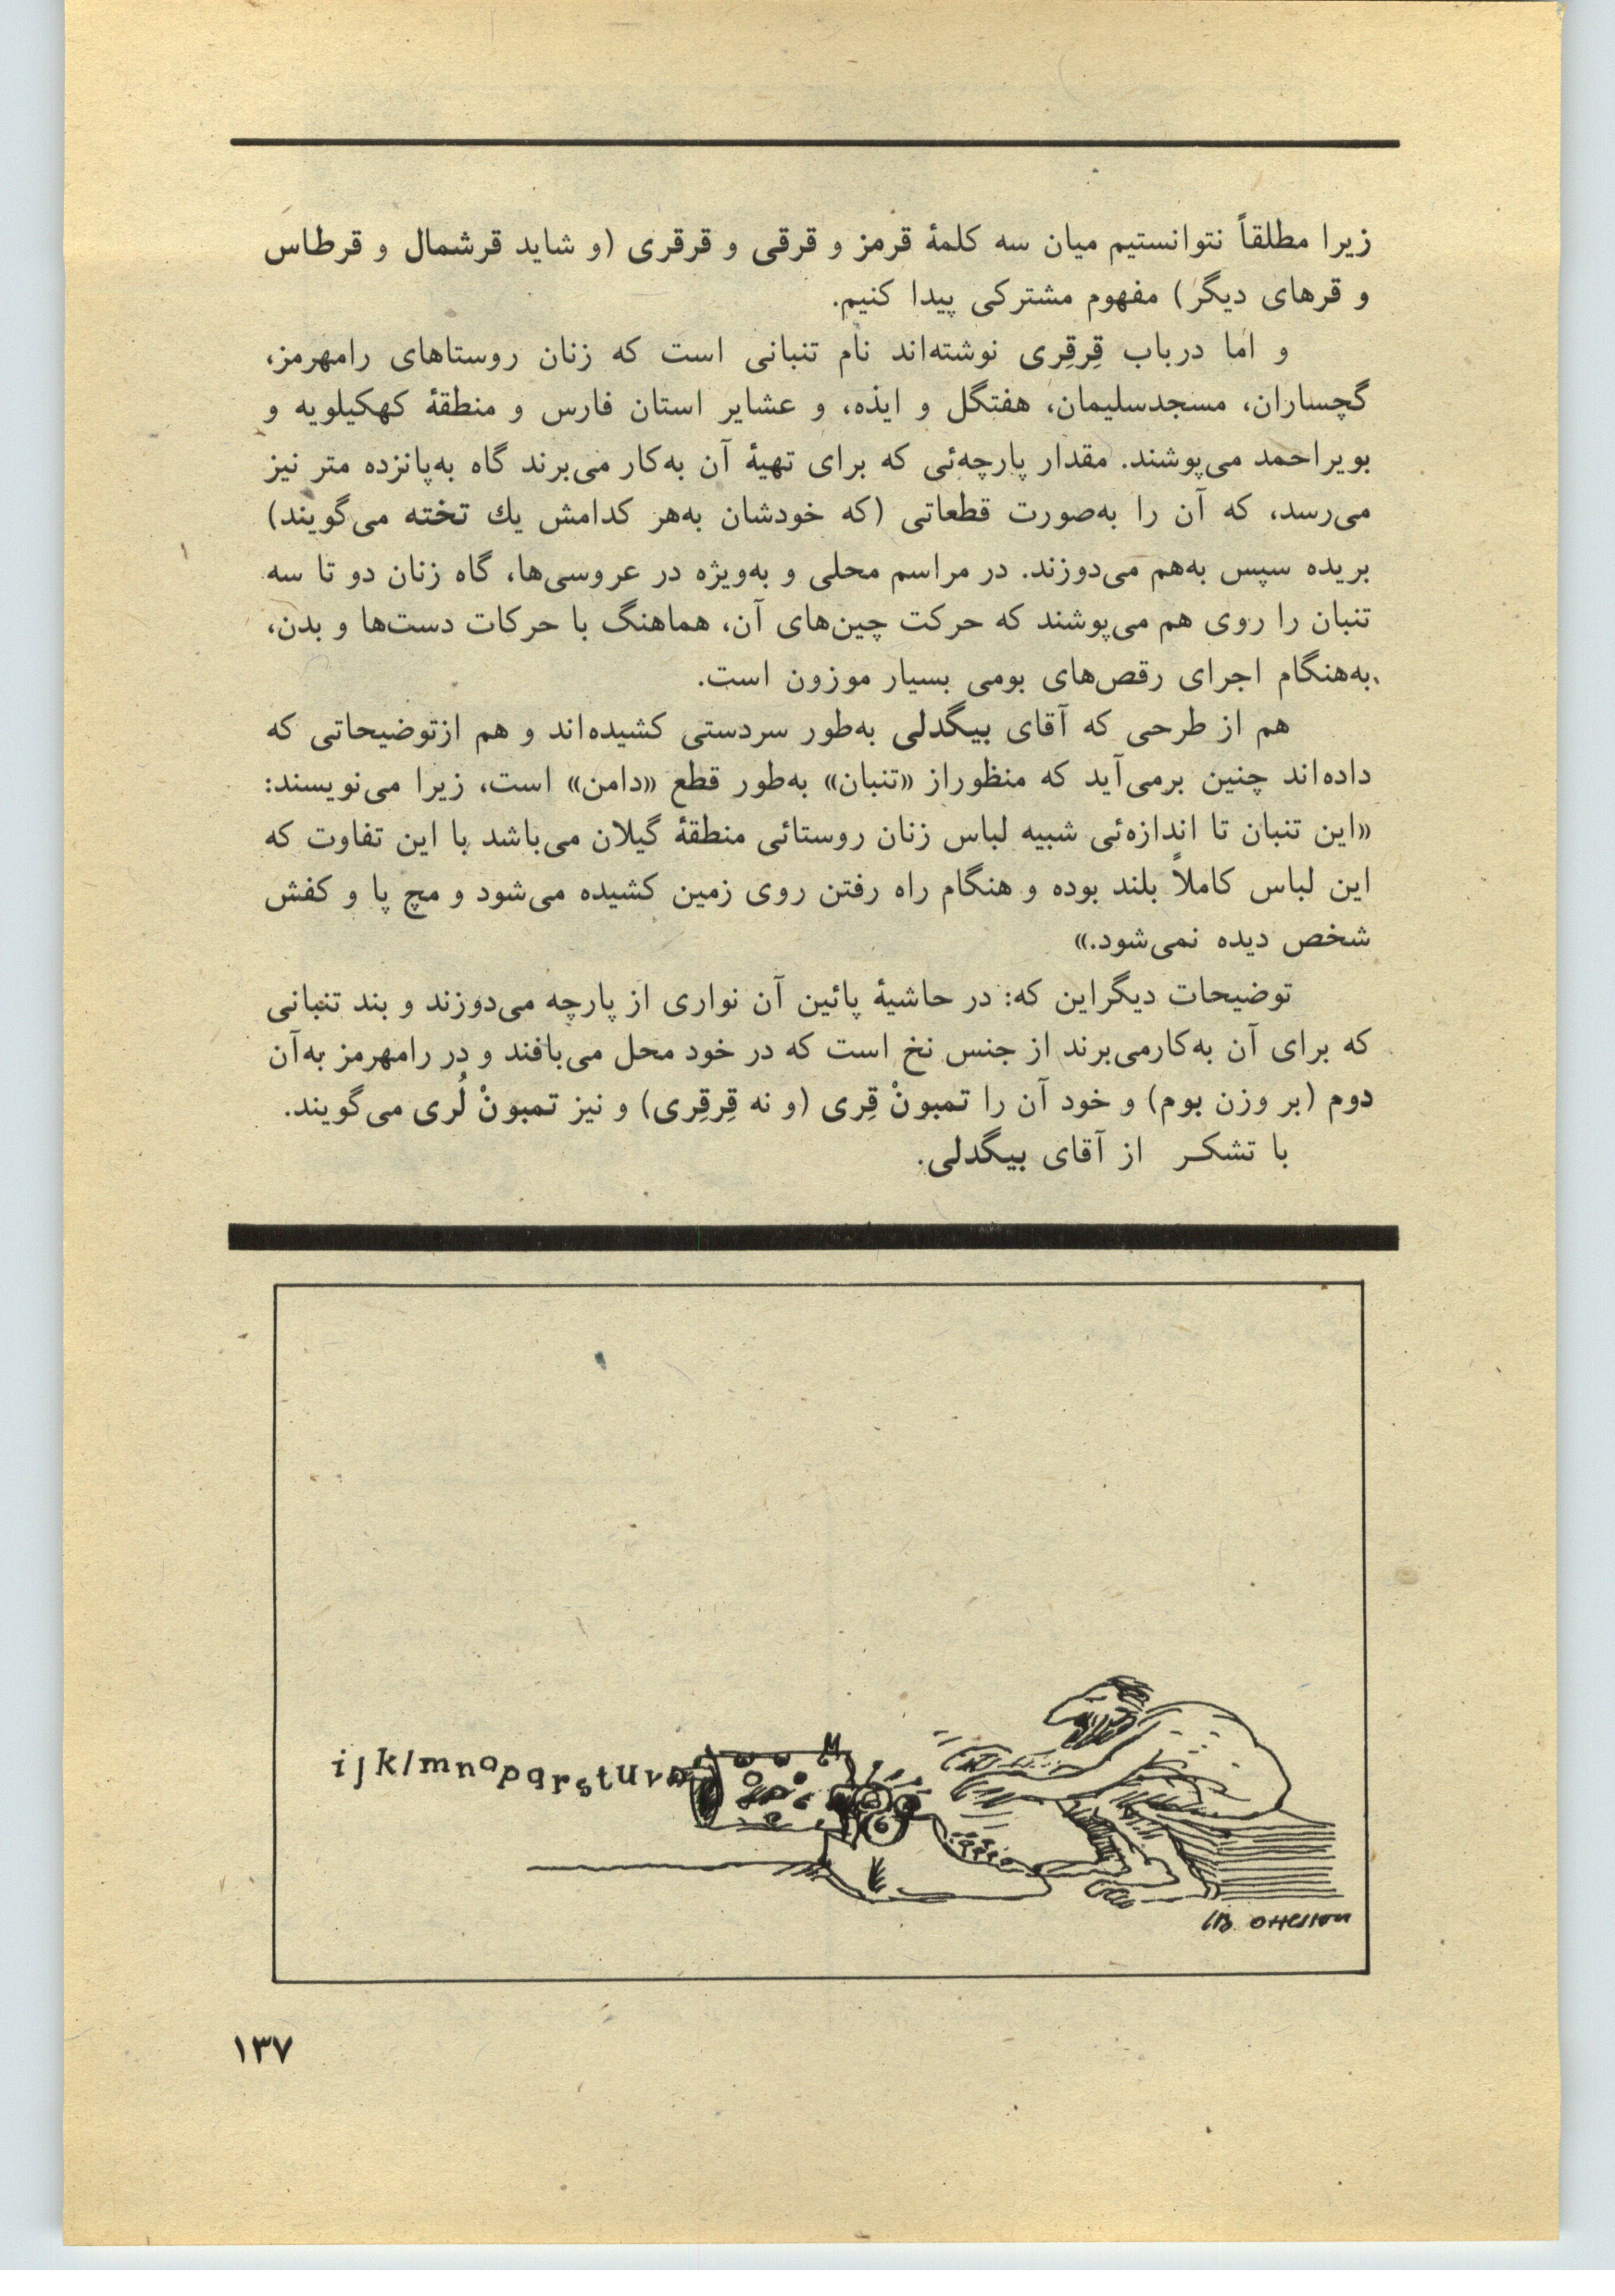 زیرا مطلقاً نتوانستیم میان سه کلمهٔ قرمز و قرقی و قرقری (و شاید قرشمال و قرطاس
و قرهای دیگر) مفهوم مشترکی پیدا کنیم.
و اما درباب قِرقِری نوشته‌اند نام تنبانی است که زنان روستاهای رامهرمز،
گچساران، مسجدسلیمان، هفتگل و ایذه، و عشایر استان فارس و منطقهٔ کهکیلویه و
بویراحمد می‌پوشند. مقدار پارچه‌ئی که برای تهیهٔ آن به‌کار می‌برند گاه به‌پانزده متر نیز
می‌رسد، که آن را به‌صورت قطعاتی (که خودشان به‌هر کدامش یك تخته می‌گویند)
بریده سپس به‌هم می‌دوزند. در مراسم محلی و به‌ویژه در عروسی‌ها، گاه زنان دو تا سه
تنبان را روی هم می‌پوشند که حرکت چین‌های آن، هماهنگ با حرکات دست‌ها و بدن،
به‌هنگام اجرای رقص‌های بومی بسیار موزون است.
هم از طرحی که آقای بیگدلی به‌طور سردستی کشیده‌اند و هم ازتوضیحاتی که
داده‌اند چنین برمی‌آید که منظوراز «تنبان» به‌طور قطع «دامن» است، زیرا می‌نویسند:
«این تنبان تا اندازه‌ئی شبیه لباس زنان روستائی منطقهٔ گیلان می‌باشد با این تفاوت که
این لباس کاملاً بلند بوده و هنگام راه رفتن روی زمین کشیده می‌شود و مچ پا و کفش
شخص دیده نمی‌شود.»
توضیحات دیگراین که: در حاشیهٔ پائین آن نواری از پارچه می‌دوزند و بند تنبانی
که برای آن به‌کارمی‌برند از جنس نخ است که در خود محل می‌بافند و در رامهرمز به‌آن
دوم (بر وزن بوم) و خود آن را تمبونْ قِری (و نه قِرقِری) و نیز تمبونْ لُری می‌گویند.
با تشکـر از آقای بیگدلی.
ijklmnopqrstuv
M
۱۳۷